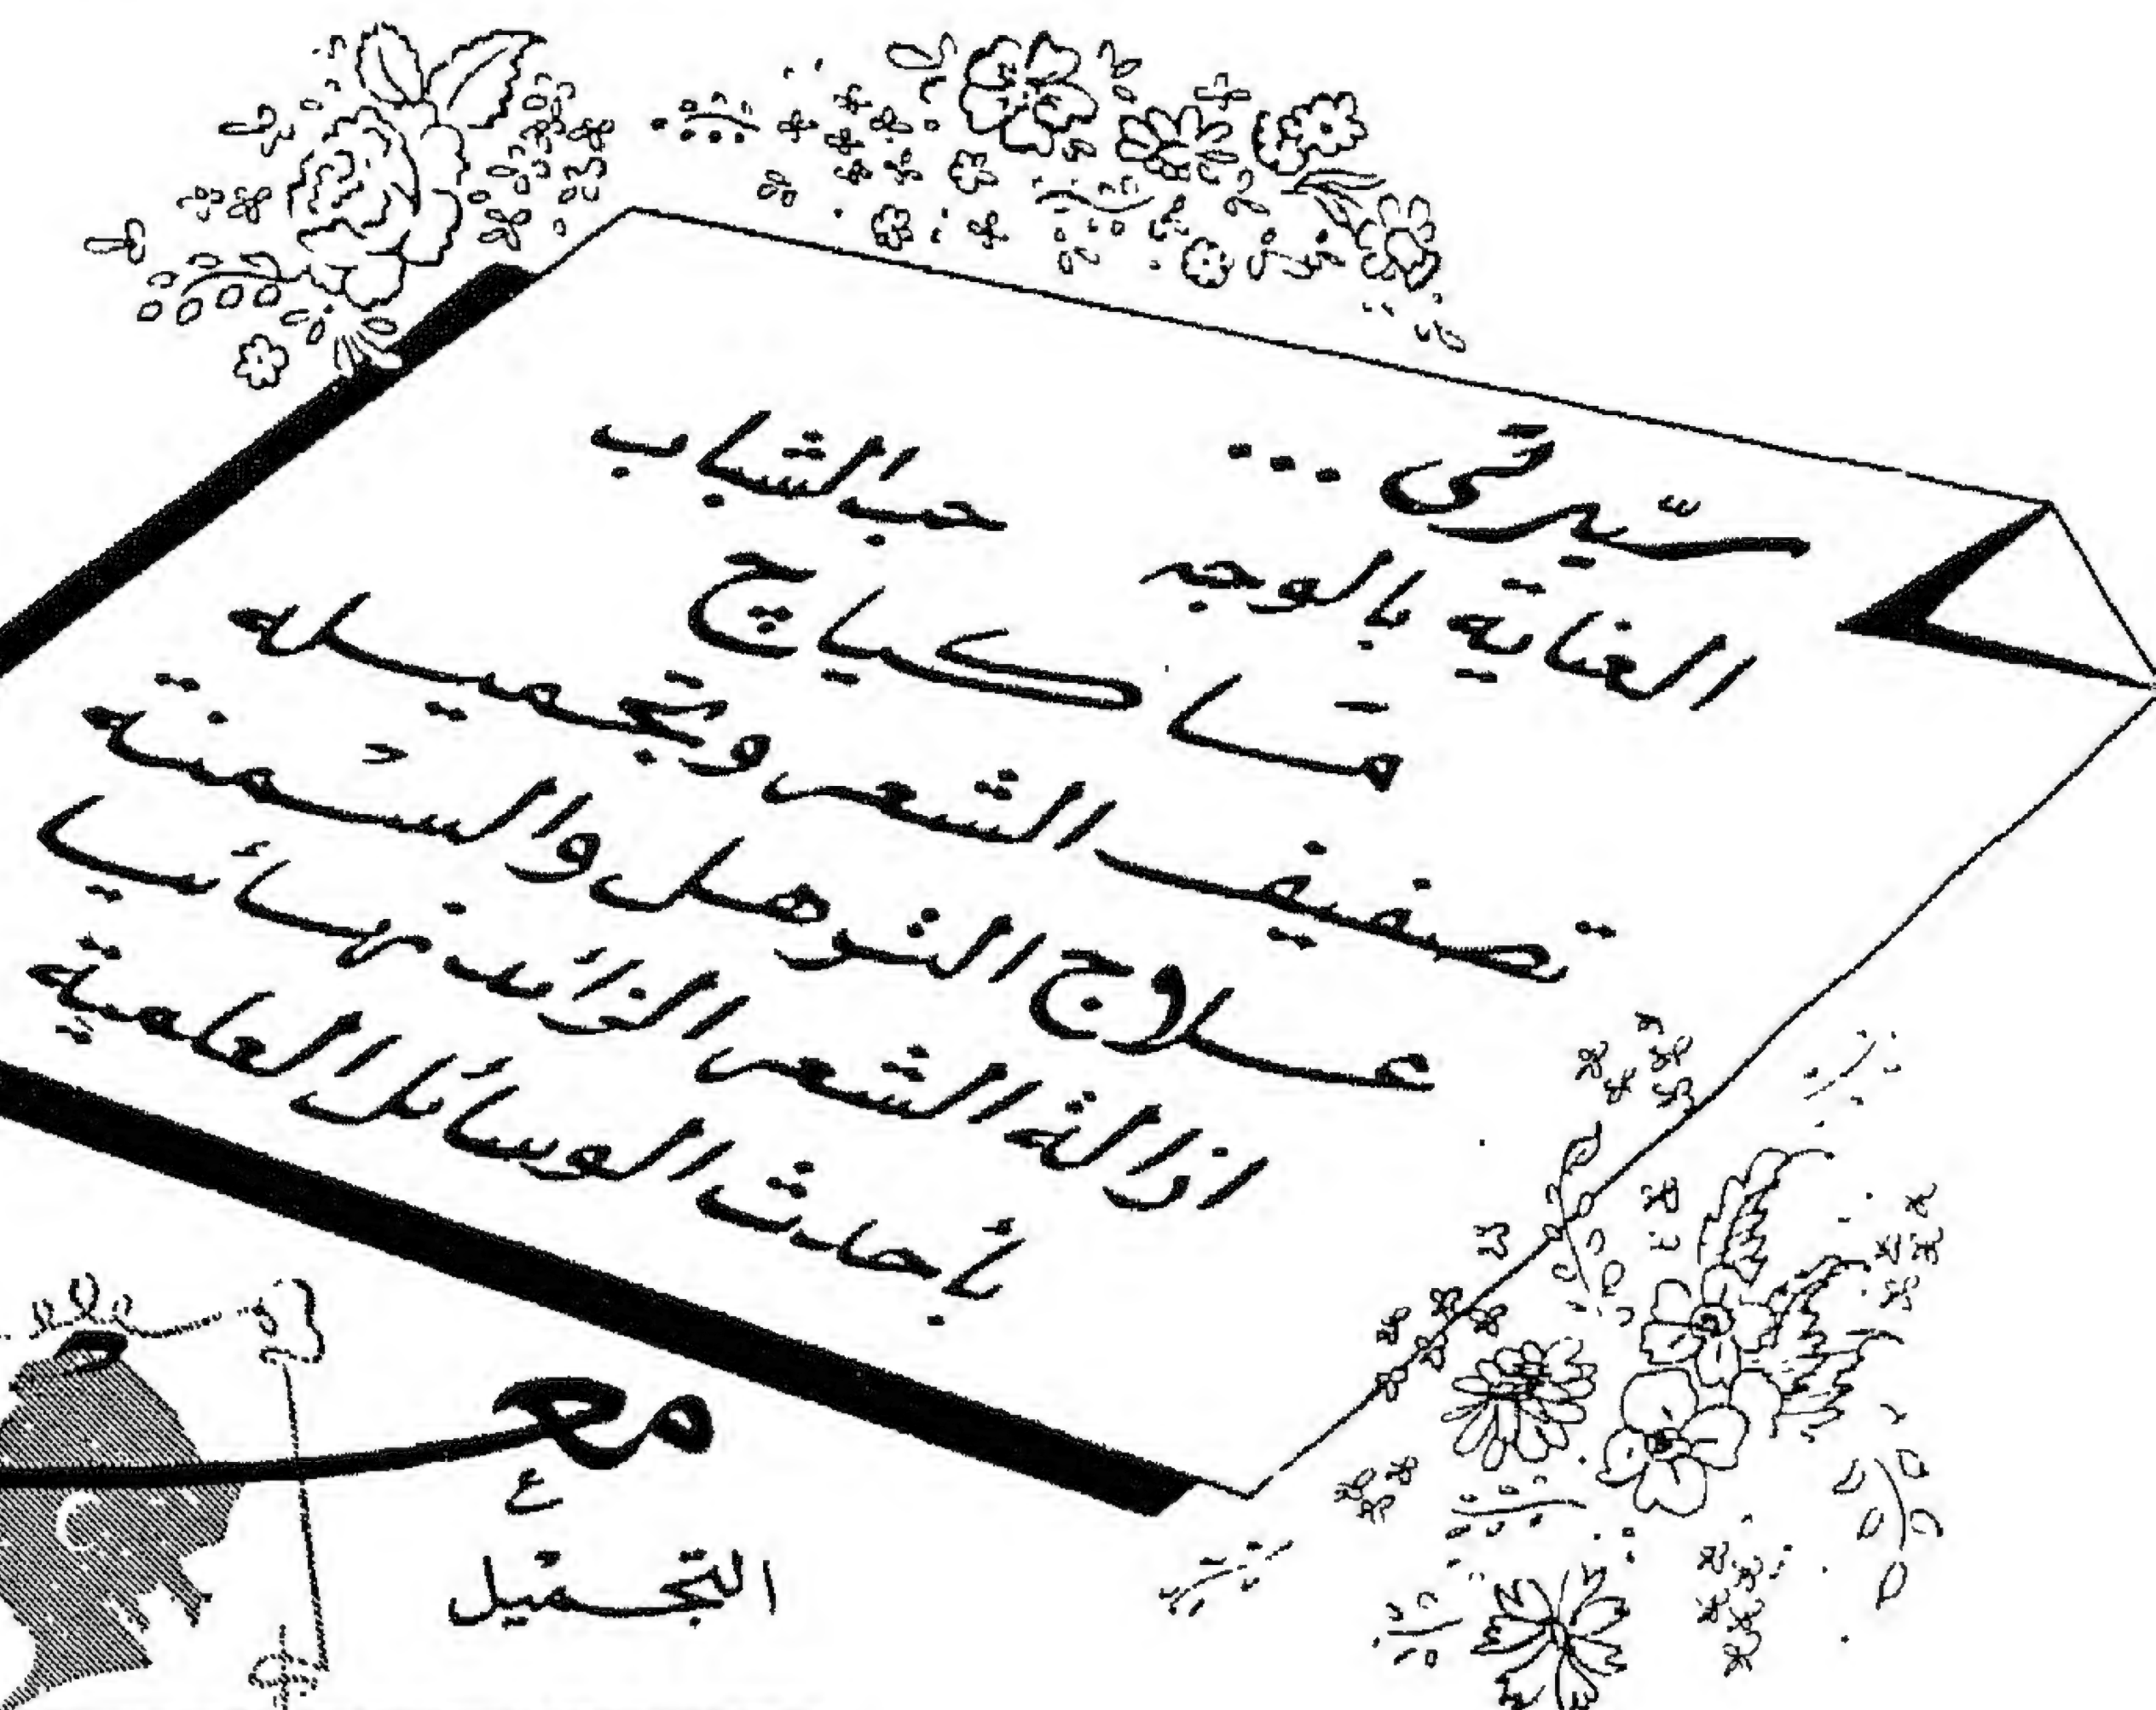 سيّدتى ...
العناية بالوجه حب الشباب
ماكياج
تصفيف الشعر وتجميله
علاج الترهل والسمنة
ازالة الشعر الزائد نهائيا
بأحدث الوسائل العلمية
مع
التجميل